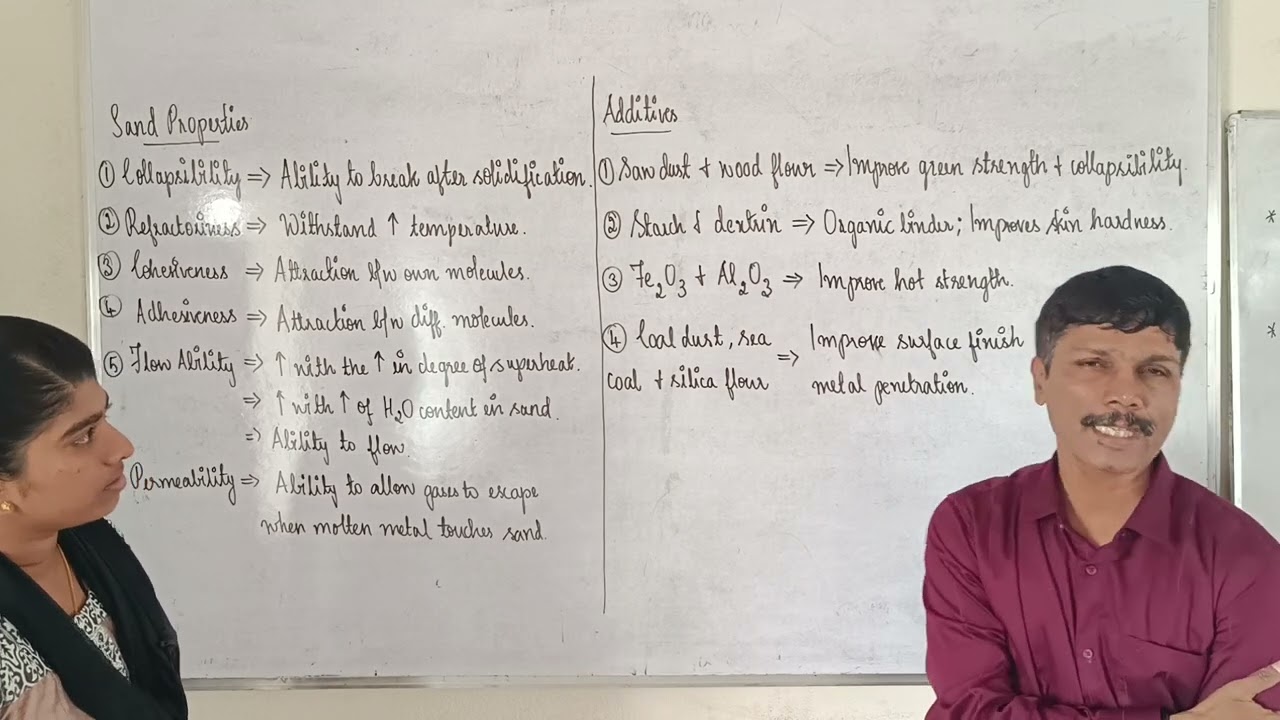 Sand Properties
① Collapsibility ⇒ Ability to break after solidification.
② Refractoriness ⇒ Withstand ↑ temperature.
③ Cohesiveness ⇒ Attraction b/w own molecules.
④ Adhesiveness ⇒ Attraction b/w diff. molecules.
⑤ Flow Ability ⇒ ↑ with the ↑ in degree of superheat.
⇒ ↑ with ↑ of H₂O content in sand.
⇒ Ability to flow.
Permeability ⇒ Ability to allow gases to escape
when molten metal touches sand.
Additives
① Saw dust + wood flour ⇒ Improve green strength + collapsibility.
② Starch & dextrin ⇒ Organic binder; Improves skin hardness.
③ Fe₂O₃ + Al₂O₃ ⇒ Improve hot strength.
④ Coal dust, sea ⇒ Improve surface finish
coal + silica flour metal penetration.
*
*